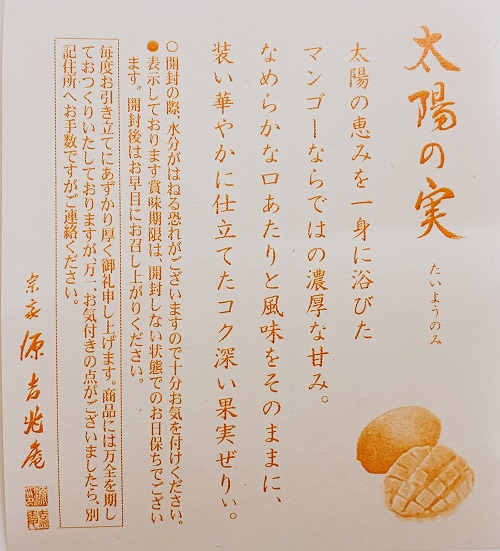 太陽の実
たいようのみ
太陽の恵みを一身に浴びた
マンゴーならではの濃厚な甘み。
なめらかな口あたりと風味をそのままに、
装い華やかに仕立てたコク深い果実ぜりぃ。
○開封の際、水分がはねる恐れがございますので十分お気を付けください。
●表示しております賞味期限は、開封しない状態でのお日保ちでござい
ます。開封後はお早目にお召し上がりください。
毎度お引き立てにあずかり厚く御礼申し上げます。商品には万全を期し
ておつくりいたしておりますが、万一、お気付きの点がございましたら、別
記住所へお手数ですがご連絡ください。
宗家 源吉兆庵